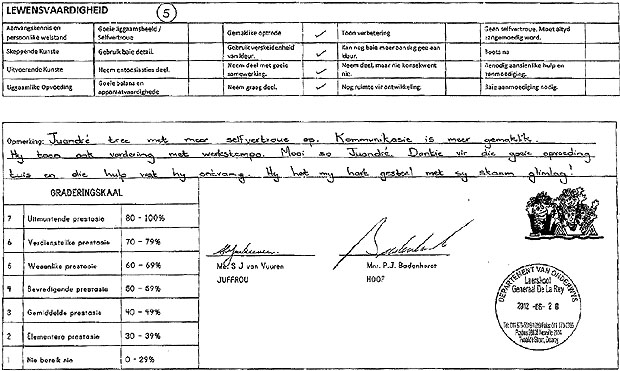 LEWENSVAARDIGHEID 5
Aanvangskennis en persoonlike welstand | Goeie liggaamsbeeld / Selfvertroue | Gemaklike optrede ✓ | Toon verbetering | Geen selfvertroue. Moet altyd aangemoedig word.
Skeppende Kunste | Gebruik baie detail. | Gebruik verskeidenheid van kleur. ✓ | Kan nog baie meer aandag gee aan kleur. | Bootsna
Uitvoerende Kunste | Neem entoesiasties deel. | Neem deel met goeie samewerking. ✓ | Neem deel, maar nie konsekwent nie. | Benodig aansienlike hulp en aanmoediging.
Liggaamlike Opvoeding | Goeie balans en | Neem graag deel. ✓ | Nog ruimte vir ontwikkeling. | Baie aanmoediging nodig.
Opmerking: Juandré tree met meer selfvertroue op. Kommunikasie is meer gemaklik.
Hy toon ook vordering met werkstempo. Mooi so Juandré. Dankie vir die goeie opvoeding
tuis en die hulp wat hy ontvang. Hy het my hart gesteel met sy skaam glimlag!
GRADERINGSKAAL
7 Uitmuntende prestasie 80 - 100%
6 Verdienstelike prestasie 70 - 79%
5 Wesenlike prestasie 60 - 69%
4 Bevredigende prestasie 50 - 59%
3 Gemiddelde prestasie 40 - 49%
2 Elementêre prestasie 30 - 39%
1 Nie bereik nie 0 - 29%
Me. S J van Vuuren
JUFFROU
Mnr. P.J. Badenhorst
HOOF
DEPARTEMENT VAN ONDERWYS
Laerskool
Generaal De La Rey
2012 -06- 2 8